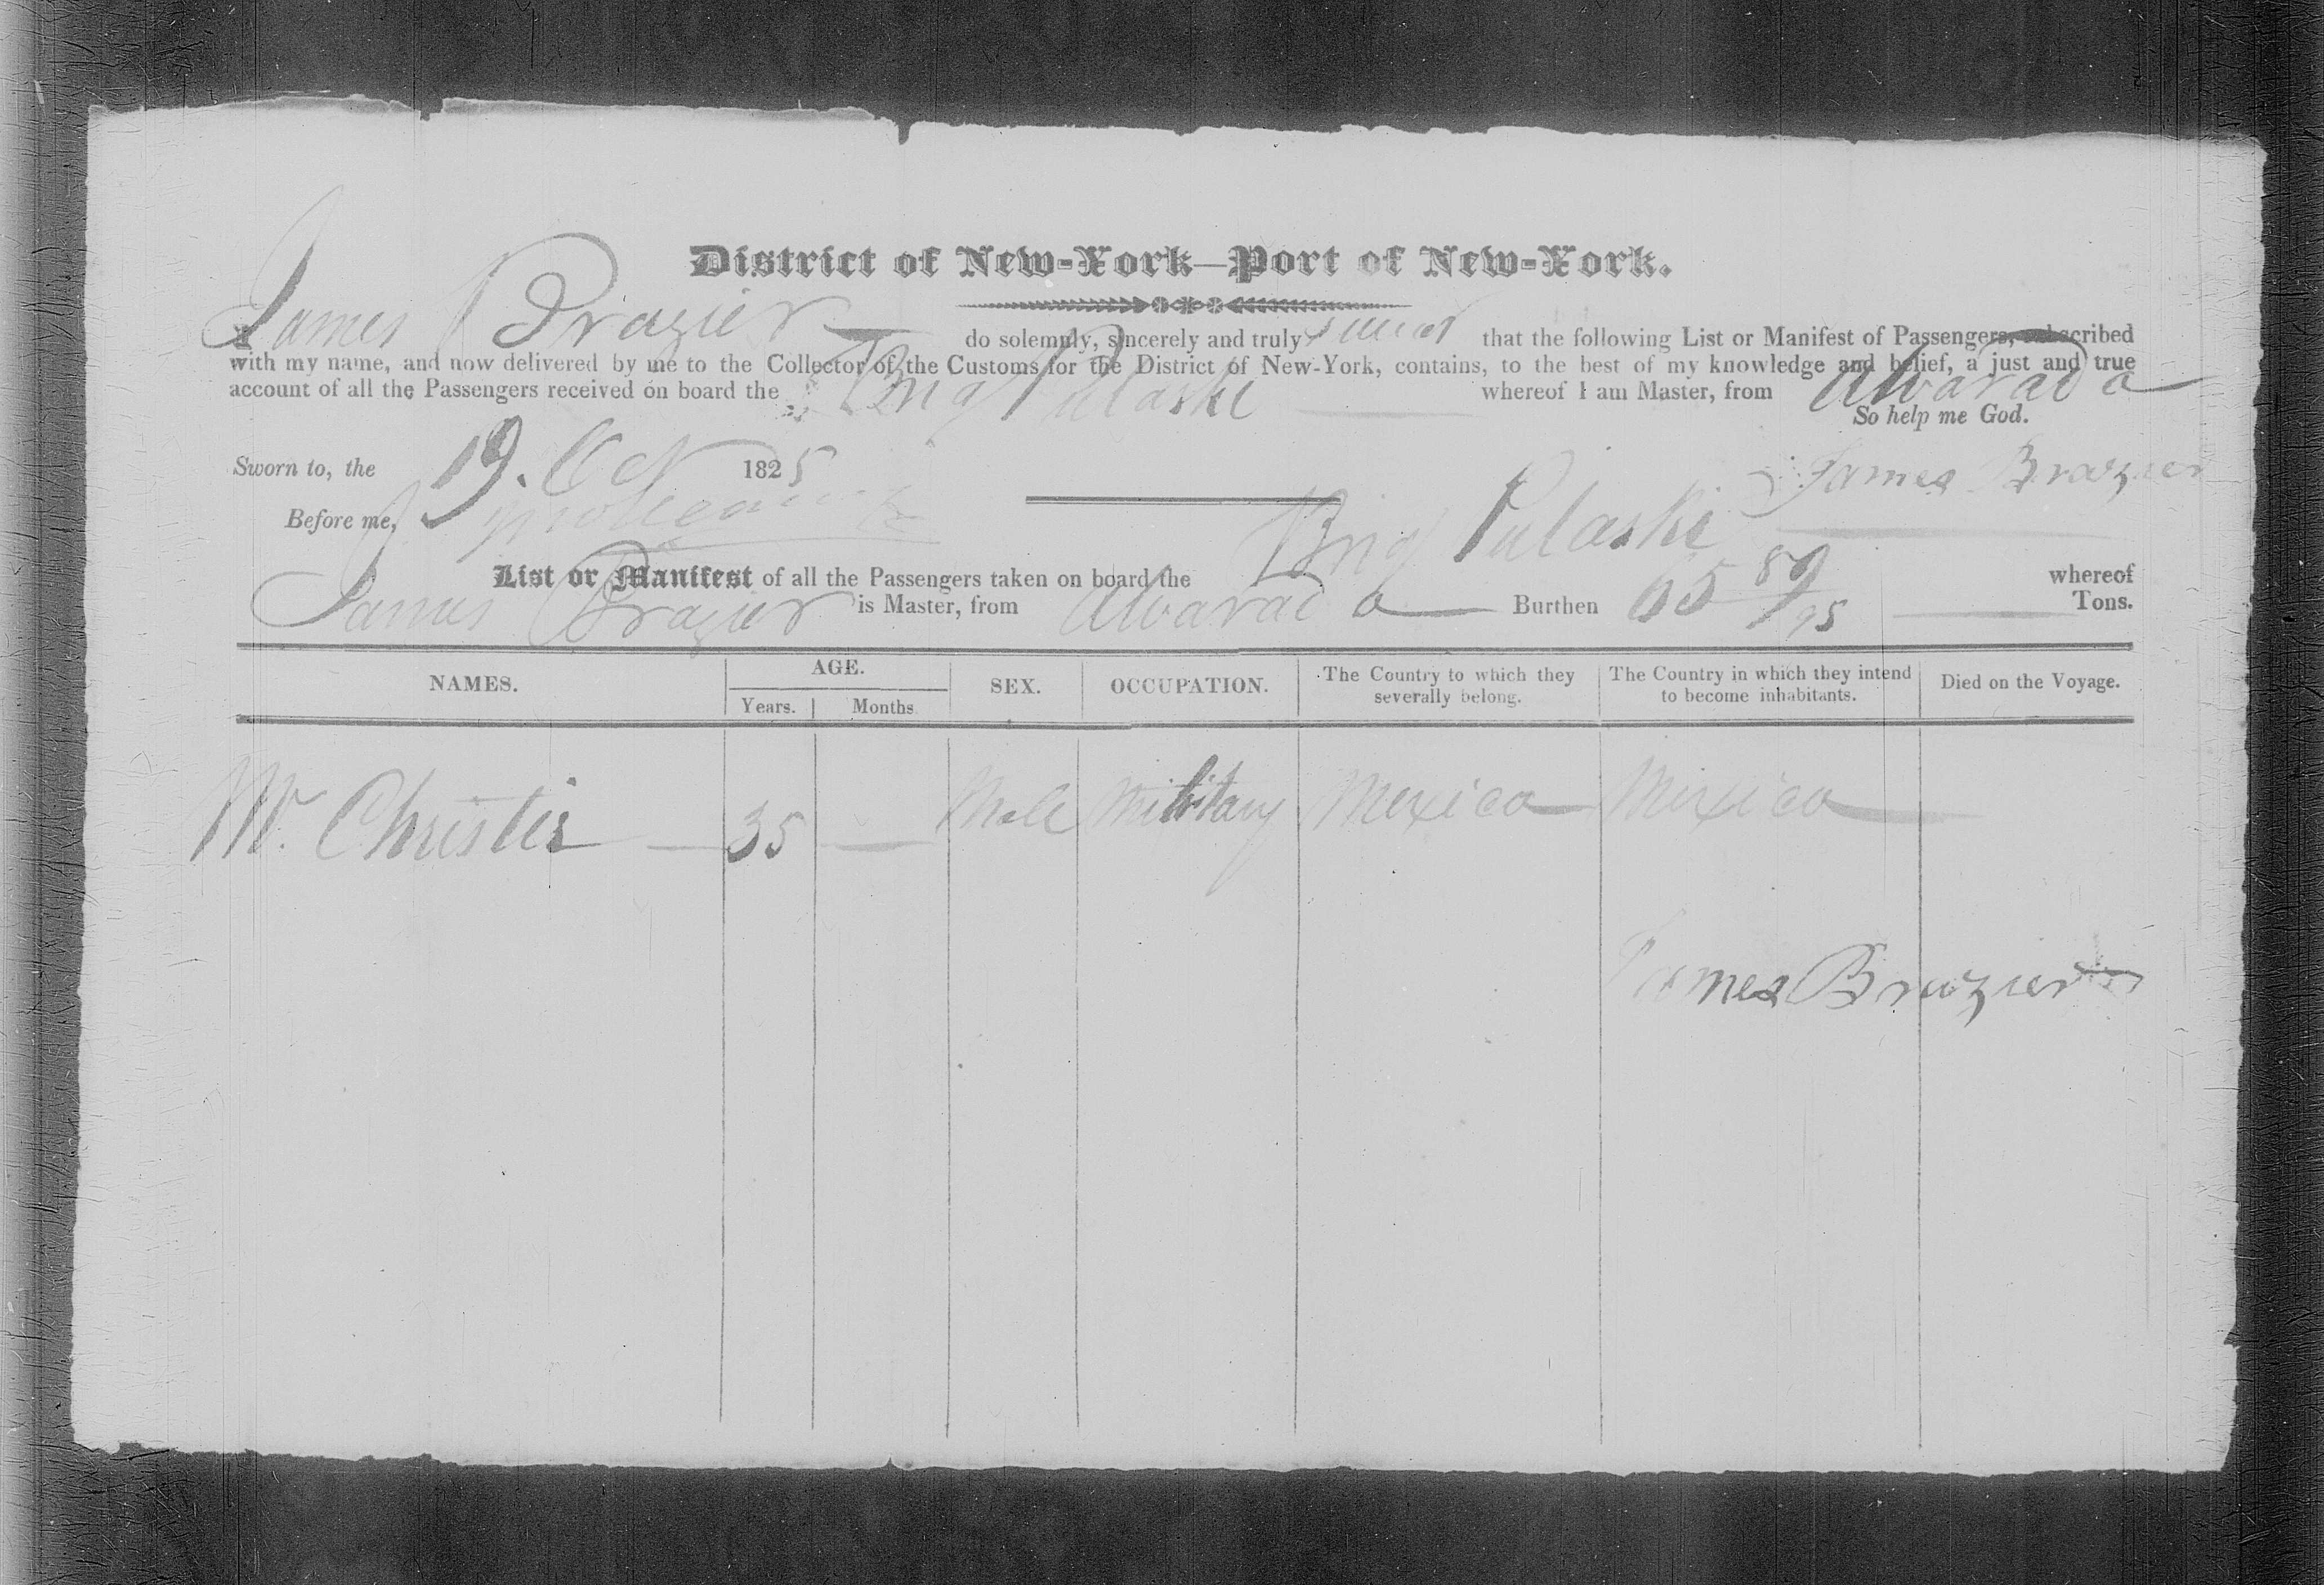 District of New-York—Port of New-York.
I James Brazier do solemnly, sincerely and truly swear that the following List or Manifest of Passengers, subscribed
with my name, and now delivered by me to the Collector of the Customs for the District of New-York, contains, to the best of my knowledge and belief, a just and true
account of all the Passengers received on board the Brig Pulaski whereof I am Master, from Alvarado
So help me God.
Sworn to, the 19. Oct 1825
James Brazier
Before me,
List or Manifest of all the Passengers taken on board the Brig Pulaski whereof
James Brazier is Master, from Alvarado Burthen 65 89/95 Tons.
NAMES. AGE. SEX. OCCUPATION. The Country to which they severally belong. The Country in which they intend to become inhabitants. Died on the Voyage.
Years. Months
Mr. Christie 35 Male Military Mexico Mexico
James Brazier